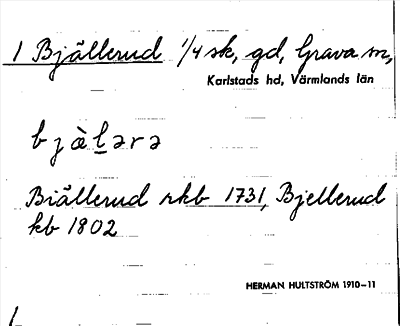 1 Bjällerud 1/4 sk, gd, Grava sn,
Karlstads hd, Värmlands län
bjàl̠ərə
Biällerud rkb 1731, Bjellerud
kb 1802
HERMAN HULTSTRÖM 1910–11